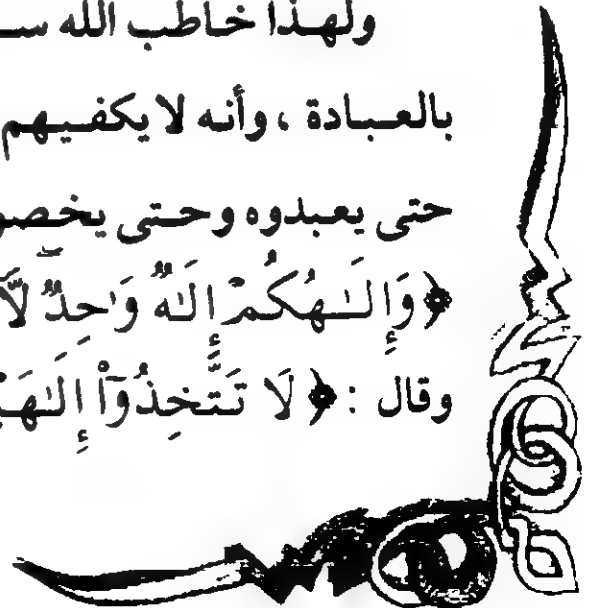 ولهذا خاطب الله
بالعبادة ، وأنه لا يكفيهم
حتى يعبدوه وحتى
﴿ وَإِلَـٰهُكُمْ إِلَـٰهٌ وَٰحِدٌ لَّآ
وقال : ﴿ لَا تَتَّخِذُوٓا۟